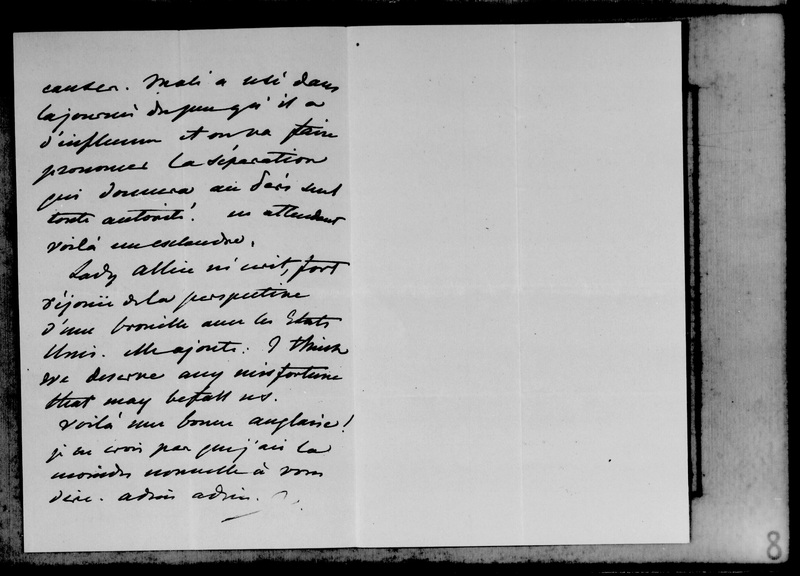 causer. Mali a usé dans
la journée du peu qu'il a
d'influence et on va faire
prononcer la séparation
qui donnera au Père seul
toute autorité. en attendant
voilà un esclandre.
Lady Allice m'écrit, fort
réjouie de la perspective
d'une brouille avec les Etats
Unis. elle ajoute: I think
we deserve any misfortune
that may befall us.
voilà une bonne anglaise!
je ne crois pas que j'ai la
moindre nouvelle à vous
dire. adieu adieu.
8